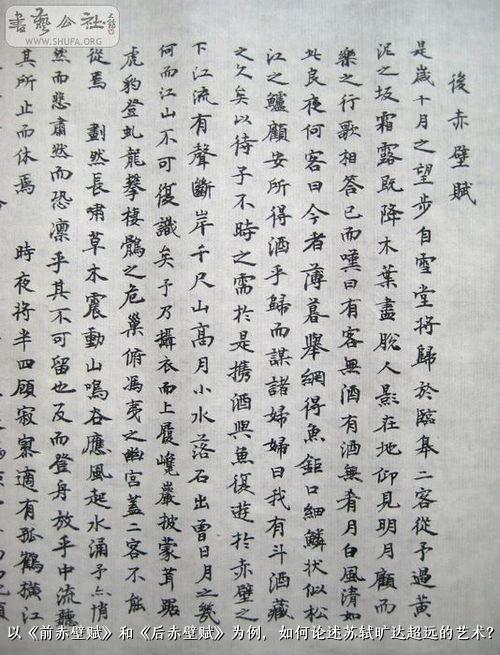 書藝公社
WWW.SHUFA.ORG
後赤壁賦
是歲十月之望步自雪堂將歸於臨皋二客從予過黃
泥之坂霜露既降木葉盡脫人影在地仰見明月顧而
樂之行歌相答已而嘆曰有客無酒有酒無肴月白風清如
此良夜何客曰今者薄暮舉網得魚鉅口細鱗狀似松
江之鱸顧安所得酒乎歸而謀諸婦婦曰我有斗酒藏
之久矣以待子不時之需於是携酒與魚復遊於赤壁之
下江流有聲斷岸千尺山高月小水落石出曾日月之幾
何而江山不可復識矣予乃攝衣而上履巉巖披蒙茸踞
虎豹登虬龍攀棲鶻之危巢俯馮夷之幽宮蓋二客不能
從焉 劃然長嘯草木震動山鳴谷應風起水涌予亦悄
然而悲肅然而恐凜乎其不可留也反而登舟放乎中流聽
其所止而休焉 時夜將半四顧寂寥適有孤鶴橫江
以《前赤壁赋》和《后赤壁赋》为例，如何论述苏轼旷达超远的艺术?